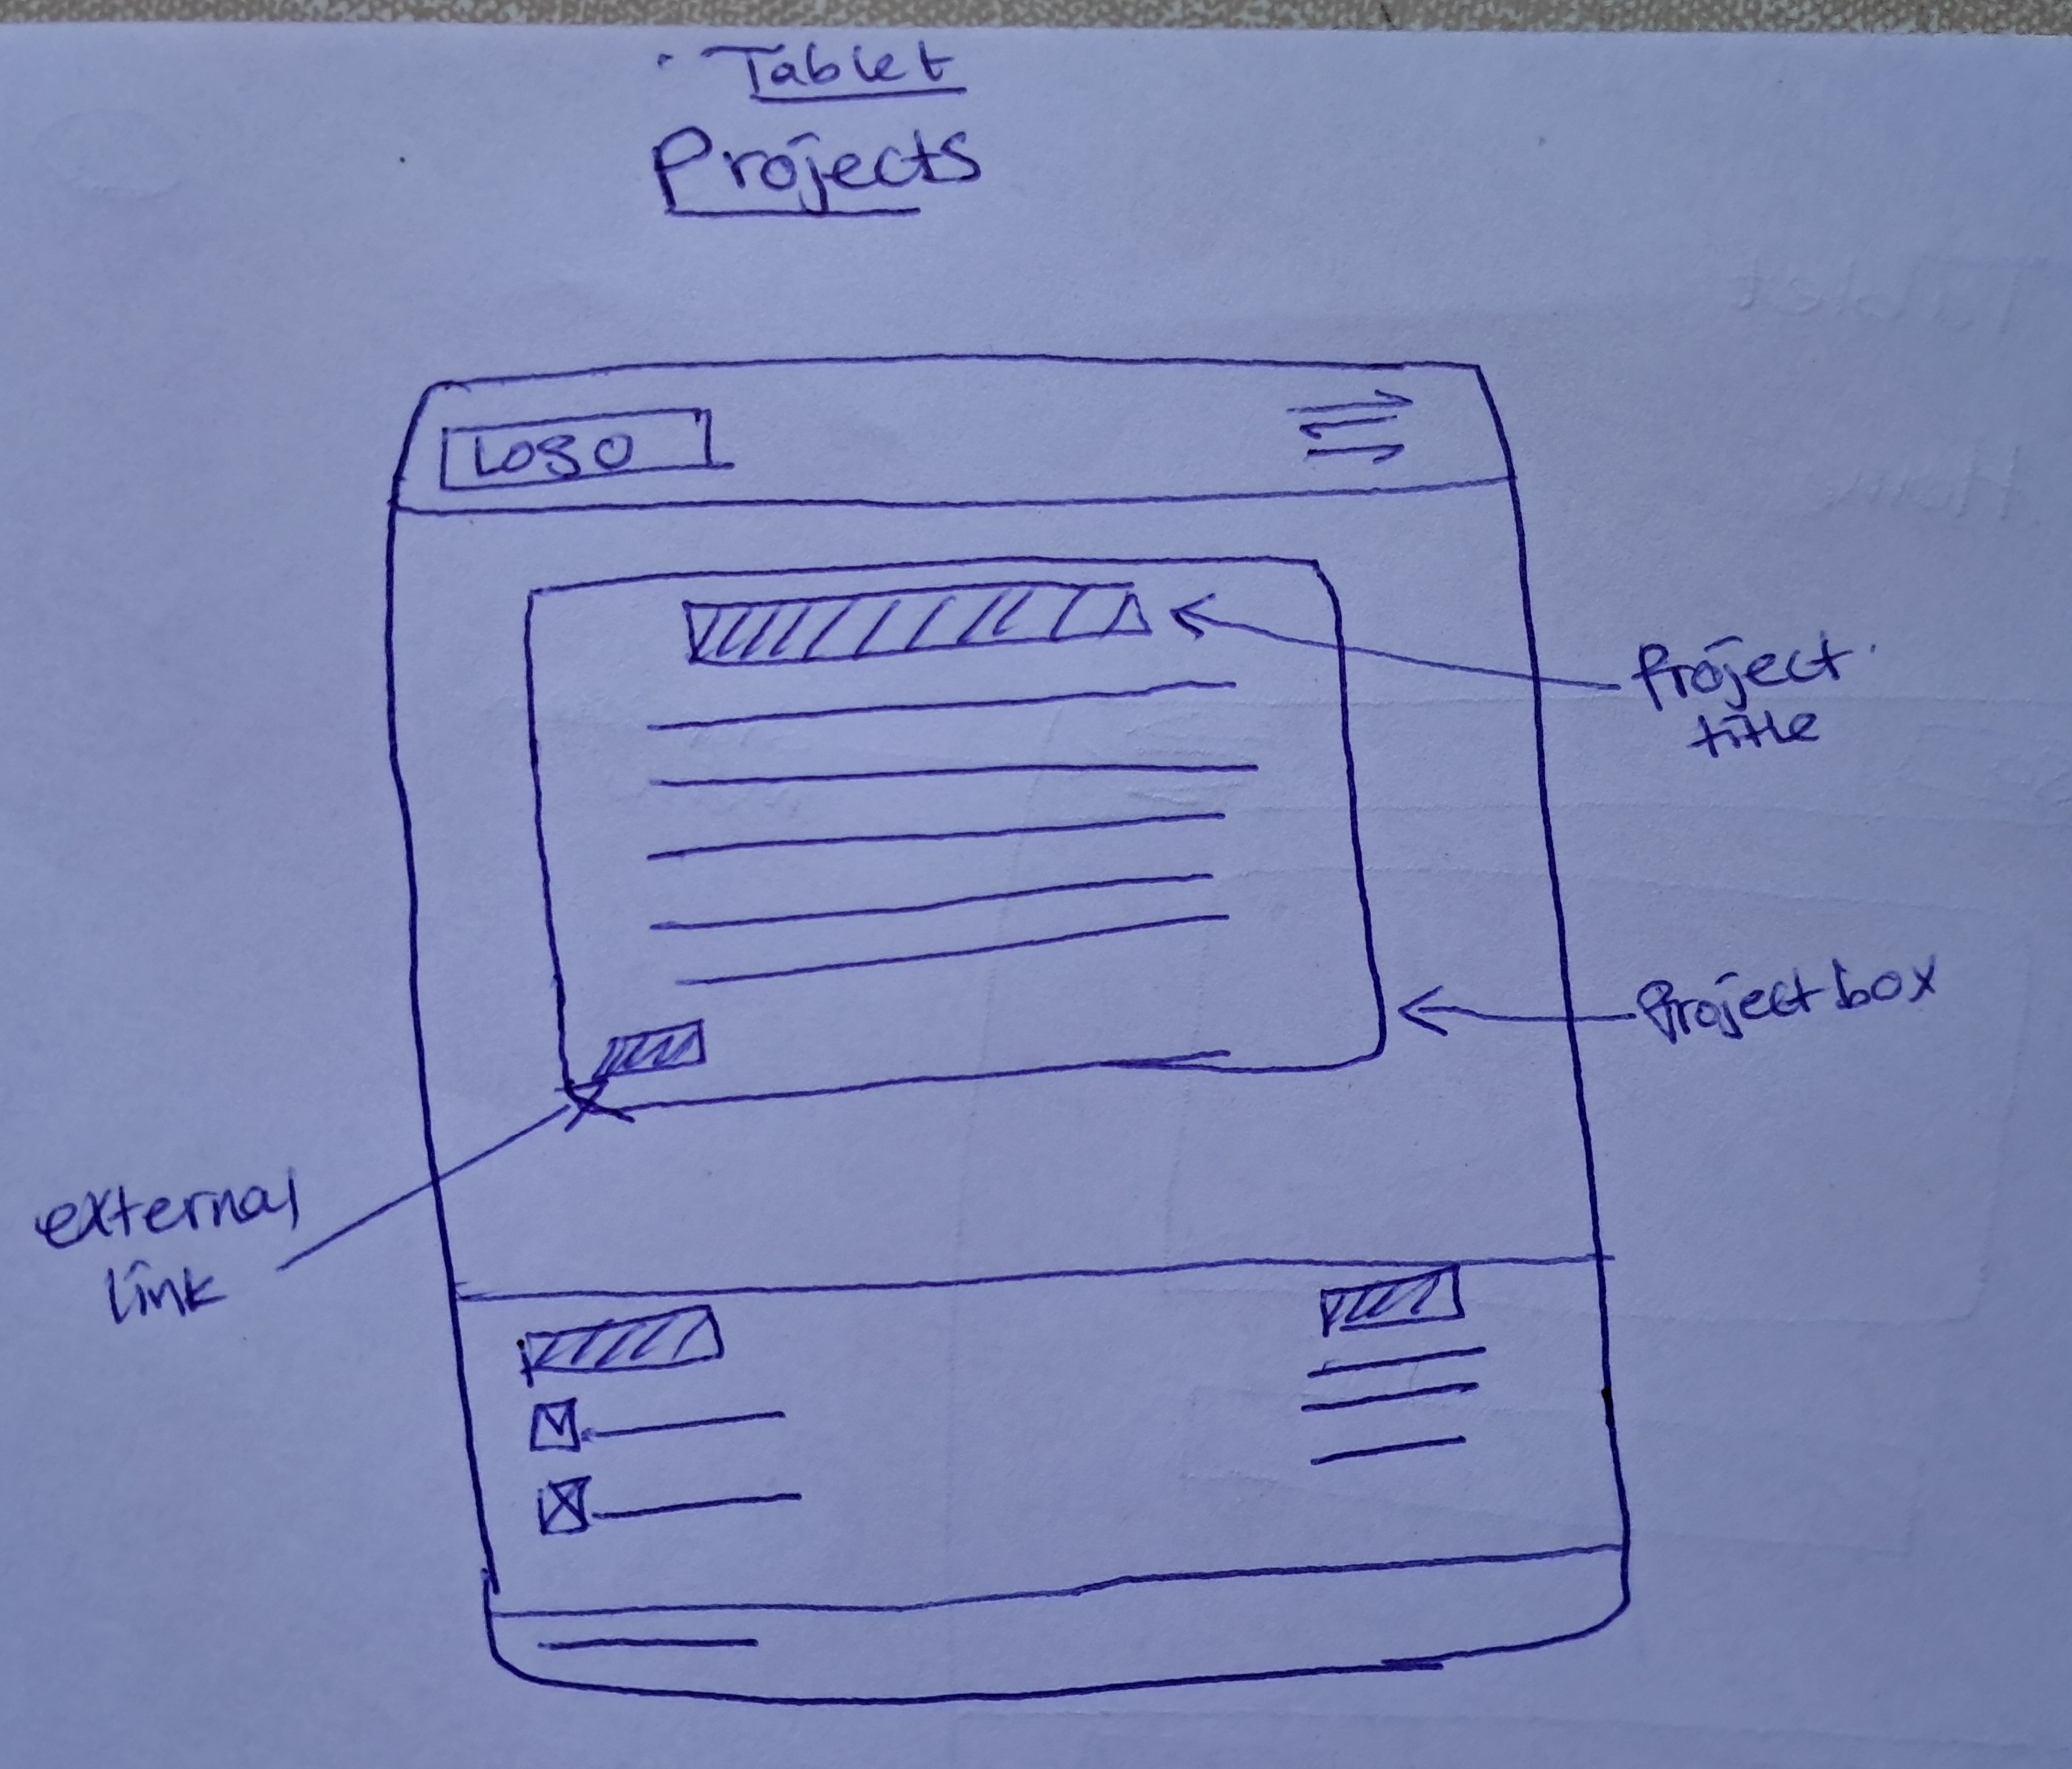 Tablet
Projects
LOGO
Project
title
Project box
external
link